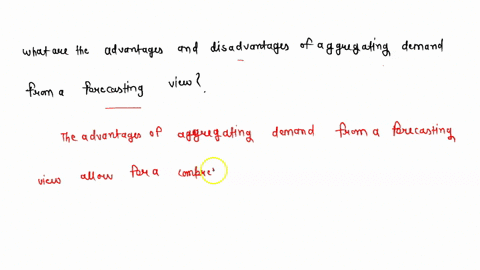 what are the advantages and disadvantages of aggregating demand
from a forecasting view?
The advantages of aggregating demand from a forecasting
view allow for a compre